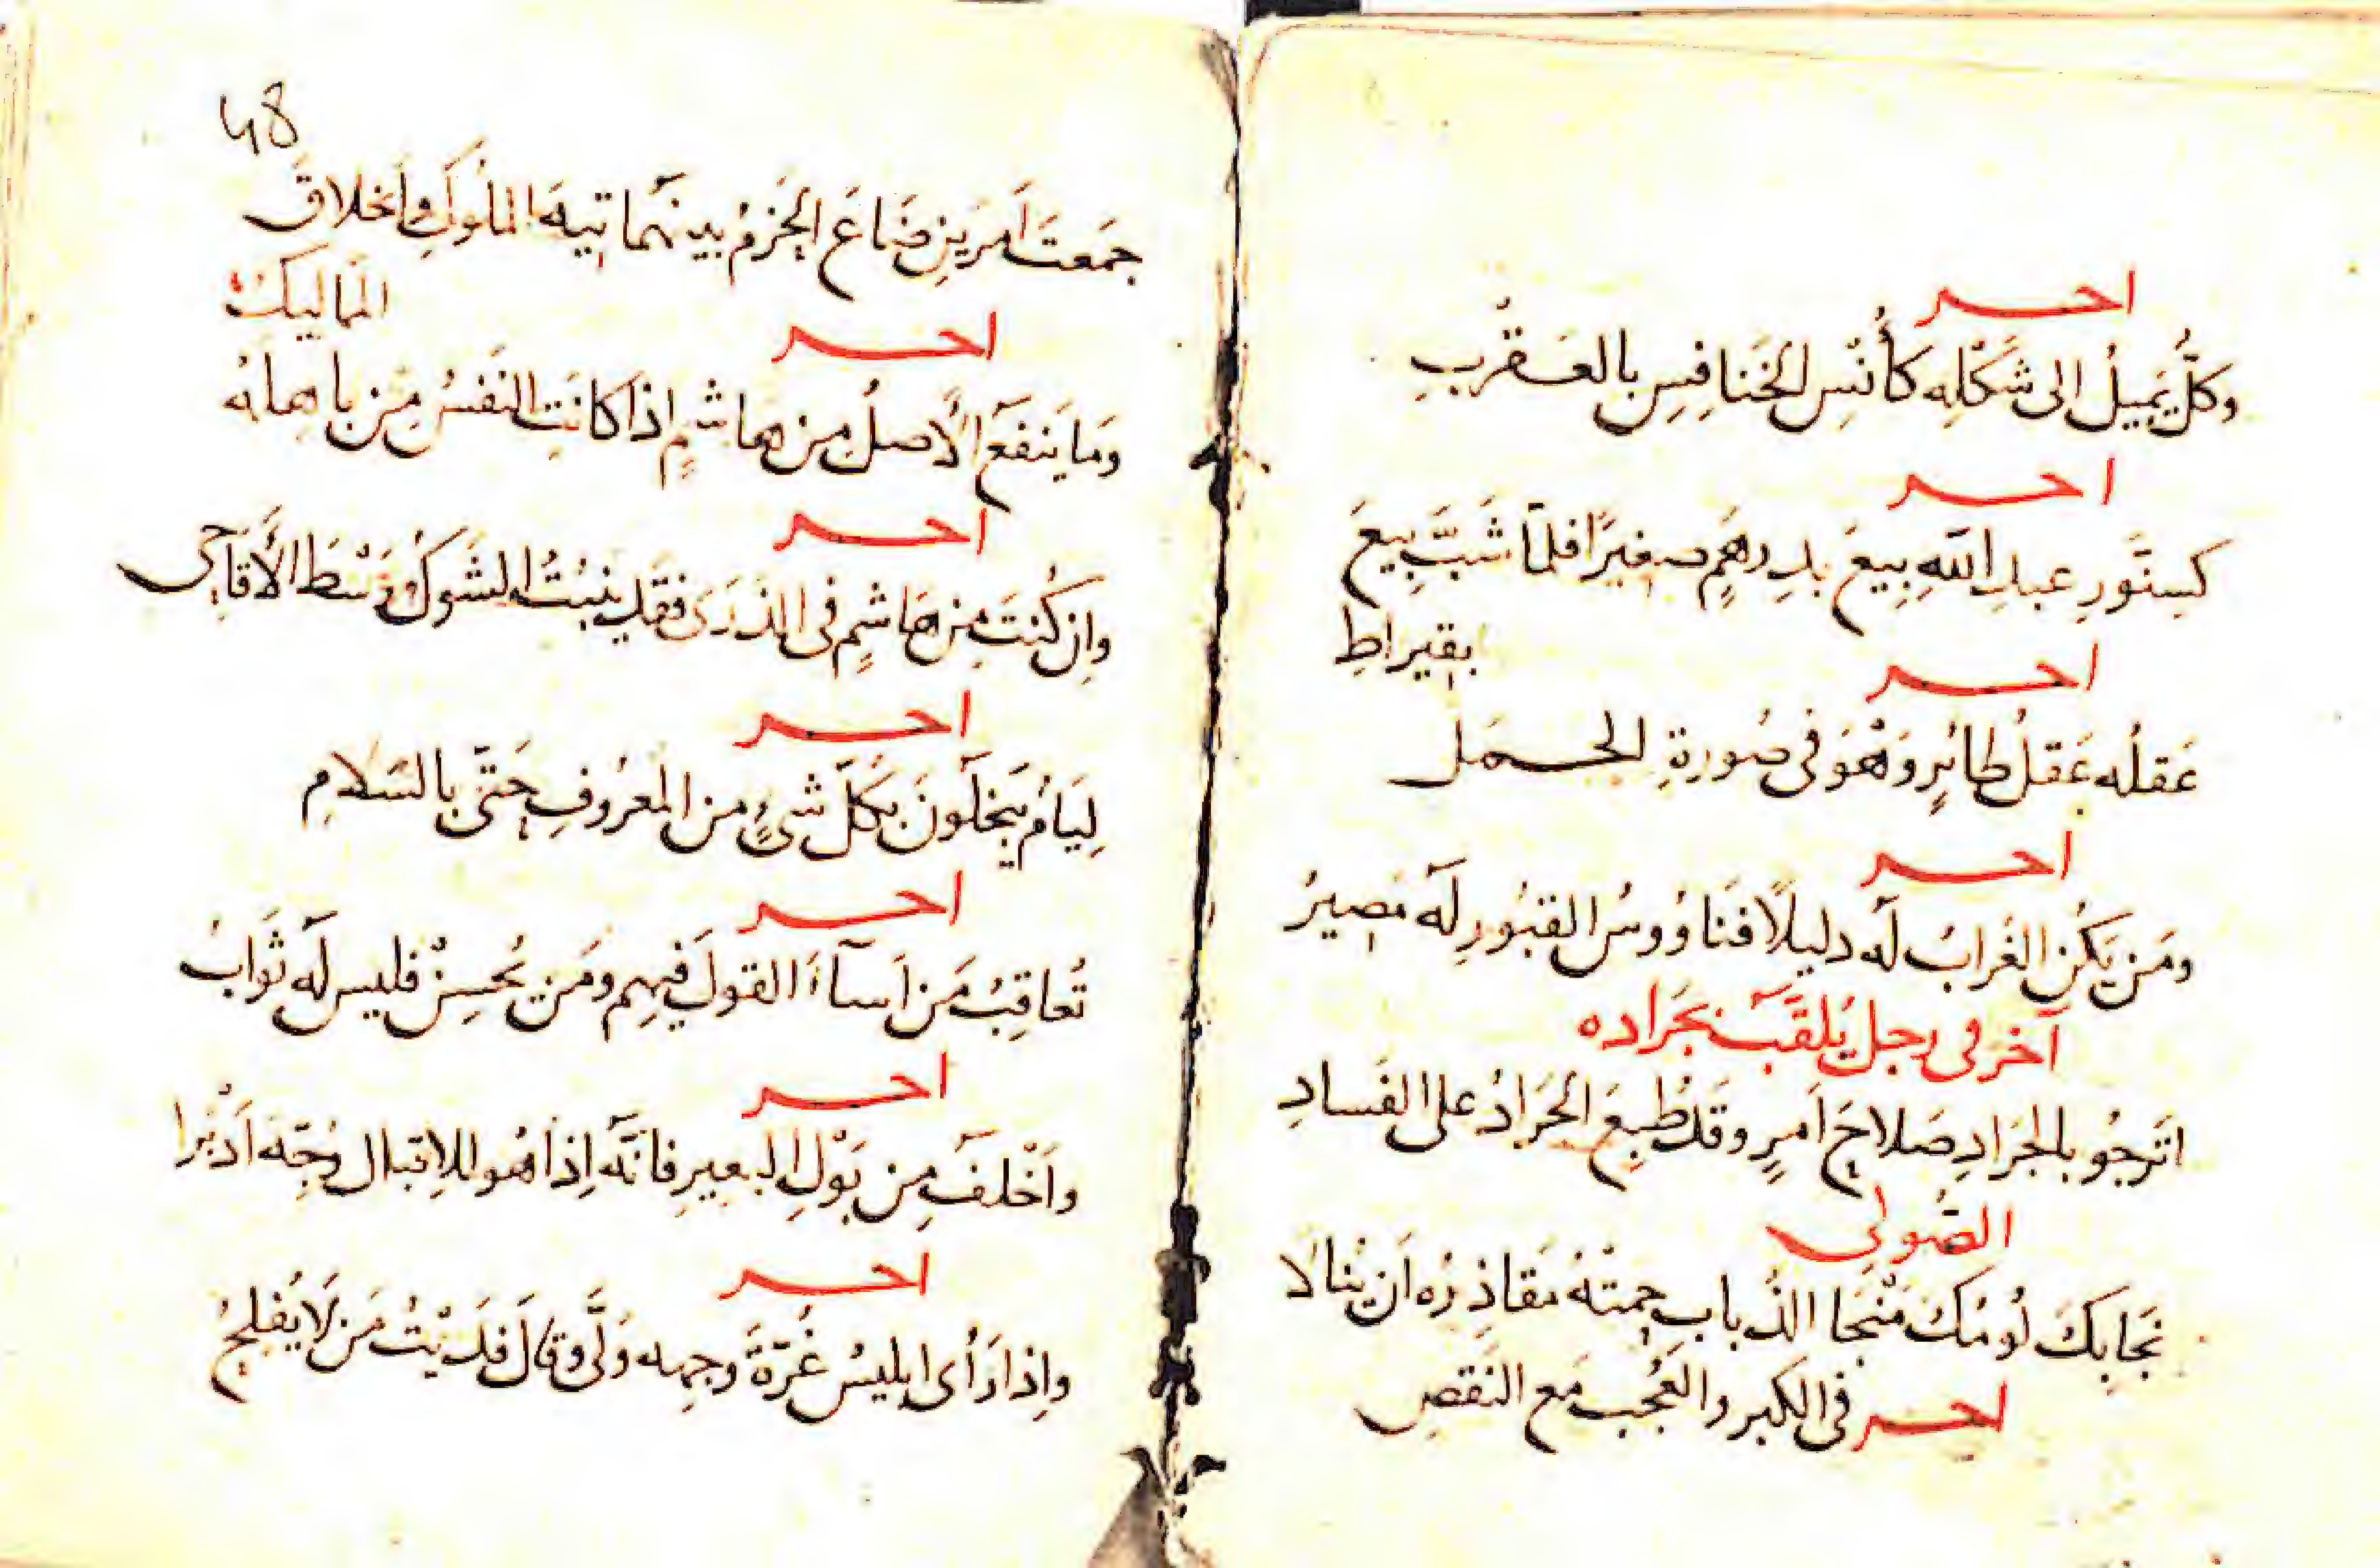 آخر
وكلٌّ يَميلُ الى شَكْلِه كأُنْسِ الخَنافِسِ بالعَقْرَبِ
آخر
كسِنَّورِ عبدِ اللّهِ بِيعَ بدِرهَمٍ صغيرًا فلمّا شَبَّ بِيعَ
بقيراطِ
آخر
عَقلُه عَقلُ طائرٍ وَهْوَ فى صُورةِ الجمَل
آخر
ومَن يَكُن الغُرابُ لَه دليلًا فنَاوُوسُ القبُورِ لَه مَصيرُ
آخر فى رجل يُلقَّب بجَراده
اتَرجُو بالجَرَادِ صَلاحَ اَمرٍ وقَد طُبِعَ الجَرَادُ على الفَسادِ
الصُولى
نَجا بِكَ لُومُكَ مَنْجَا الذُبابِ حمَتْهُ مَقاذِرُه اَن يُنالَا
آخر فى الكبر والعُجب مَع النَقصِ
48
جمَعتَ اَمرَينِ ضَاعَ الحَزمُ بينَهُما تِيهَ المُلُوكِ واَخلاقَ
المَمَاليكْ
آخر
وَما يَنفَع الأَصلُ مِن هاشمٍ اذا كانَتِ النَفسُ مِن باهِلَه
آخر
وإن كُنتَ مِن هَاشمٍ فى الذُرَى فقَد يَنبُتُ الشَوكُ وَسْطَ الأَقاحى
آخر
لِيَامٌ يَبخَلُونَ بكلّ شىءٍ من المَعرُوفِ حَتّى بالسَلامِ
آخر
تُعاقِبُ مَن اَساءَ القولَ فيهِم ومَن يُحسِنْ فليس لَه ثَوابُ
آخر
واَخْلَفَ مِن بَوْلِ البعيرِ فانّهَ إذا هُو للاِقبال وُجِّه اَدْبَرا
آخر
واِذا رَأى ابليسُ غُرّةَ وجهِه وَلَّى وقالَ فَدَيْتُ مَن لَا يُفلِحُ